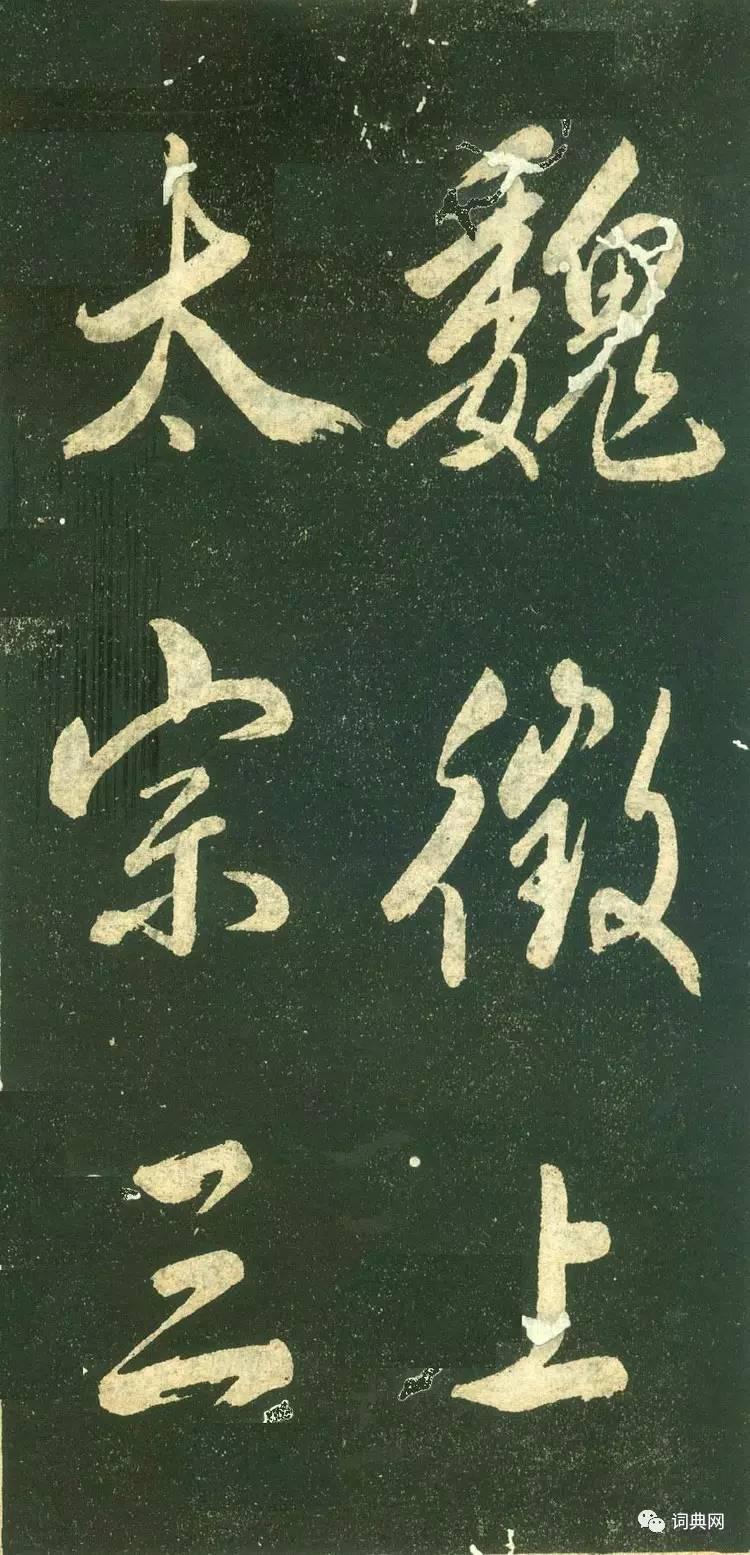 魏徵上
太宗三
词典网